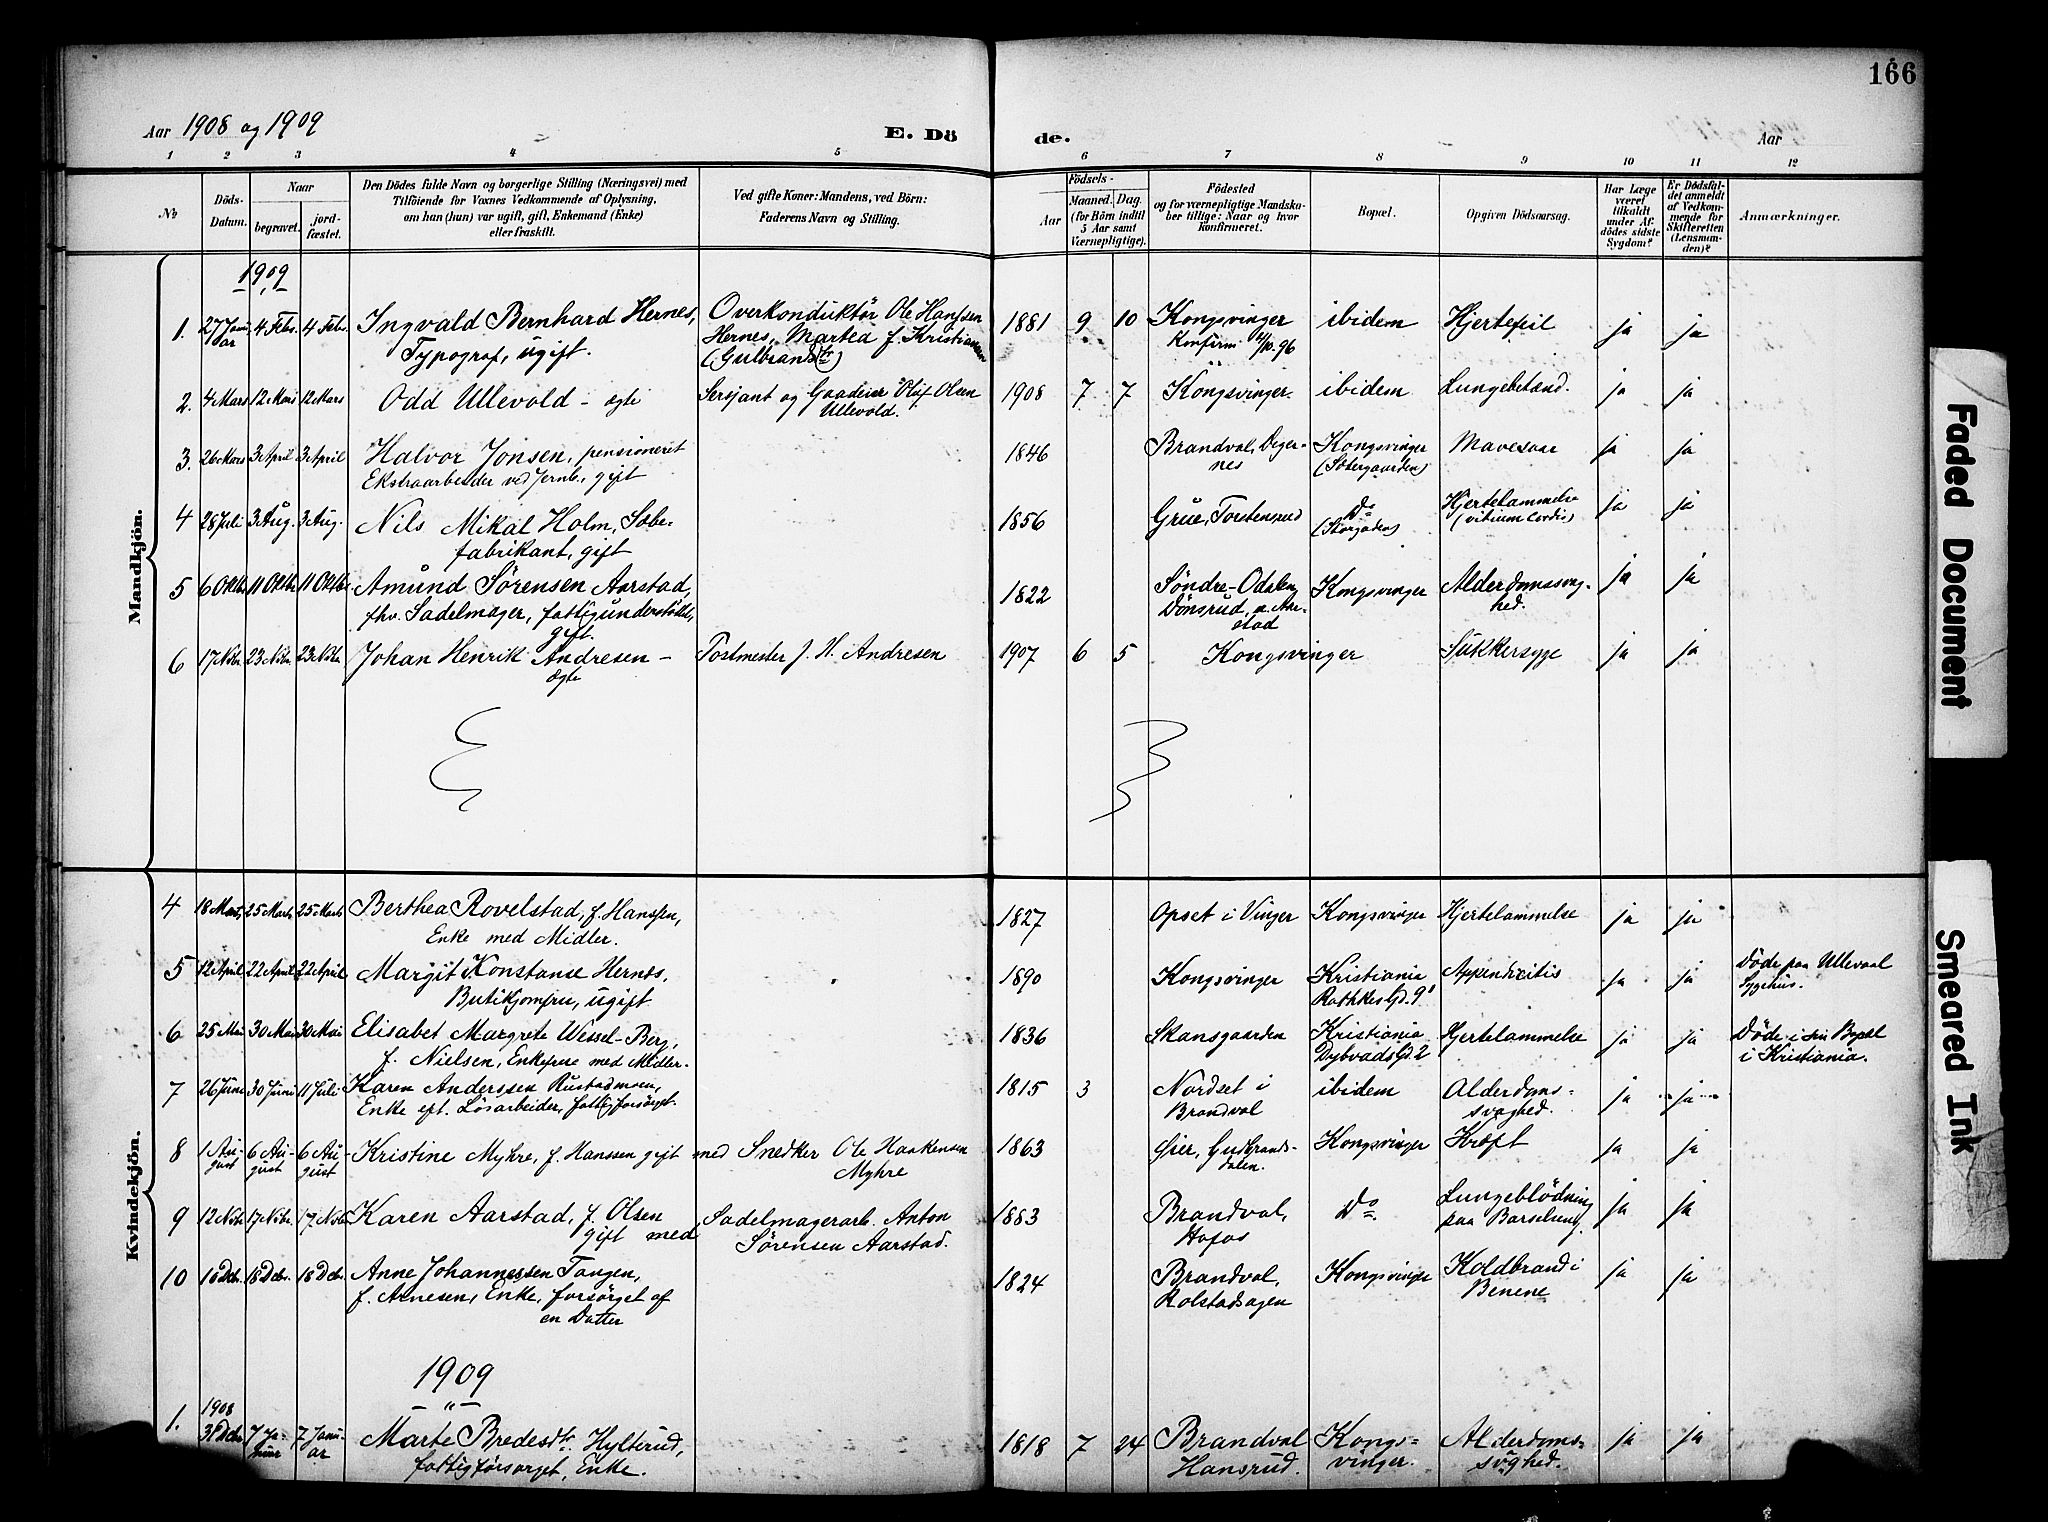 166
Aar 1908 og 1909
E. Dö
de.
Aar
1 2 3 4 5 6 7 8 9 10 11 12
No
Döds-Datum.
Naar
begravet.
jord-fæstet.
Den Dödes fulde Navn og borgerlige Stilling (Næringsvei) med
Tilföiende for Voxnes Vedkommende af Oplysning,
om han (hun) var ugift, gift, Enkemand (Enke)
eller fraskilt.
Ved gifte Koner: Mandens, ved Börn:
Faderens Navn og Stilling.
Födsels-
Aar
Maaned. Dag.
(for Börn indtil
5 Aar samt
Værnepligtige).
Födested
og for værnepligtige Mandska-
ber tillige: Naar og hvor
konfirmeret.
Bopæl.
Opgiven Dödsaarsag.
Har Læge
været
tilkaldt
under Af-
dödes sidste
Sygdom?
Er Dödsfal-
det anmeldt
af Vedkom-
mende for
Skifteretten
(Lensman-
den)?
Anmærkninger.
Mandkjön.
1909
1. 27 Janu-ar 4 Febr. 4 Febr. Ingvald Bernhard Hernes, Overkonduktör Ole Hanssen 1881 9 10 Kongsvinger ibidem Hjertefeil ja ja
Typograf, ugift. Hernes, Martea f. Kristiansen Konfirm. 96
(Gulbrandsdtr)
2. 4 Mars 12 Mars 12 Mars Odd Ullevold – ægte Sersjant og Olaf Olsen 1908 7 7 Kongsvinger. ibidem Lungebetænd. ja ja
Ullevold.
3. 26 Mars 3 April 3 April Halvor Jonsen, pensioneret 1846 Brandval, Diger- Kongsvinger Mavesaar ja ja
Ekstraarbeider ved Jernb., gift nes
4 28 Juli 3 Aug. 3 Aug. Nils Mikal Holm, Sæbe- 1856 Grue, Do Hjertelammelse ja ja
fabrikant, gift (Storgaden) (vitium Cordis)
5 6 Oktbr 11 Oktbr 11 Oktbr. Amund Sörensen Aarstad, 1822 Söndre-Odalen, Kongsvinger Alderdomssvag- ja ja
fhv. Sadelmager, fattigunderstöttet, Dönsrud, hed.
gift. stad
6 17 Nvbr 23 Nvbr. 23 Nvbr Johan Henrik Andresen – Postmester J. H. Andresen 1907 6 5 Kongsvinger Sukkersyge ja ja
ægte
Kvindekjön.
4 18 Marts 25 Marts 25 Marts Berthea Rovelstad, f. Hanssen, 1827 Opset i Vinger Kongsvinger Hjertelammelse ja ja
Enke med Midler.
5 12 April 22 April 22 April Margit Konstanse Hernes, 1890 Kongsvinger Kristiania Appendicitis ja ja Döde paa Ullevaal
Butikjomfru, ugift Rathkes Gd. 9 Sygehus.
6 25 Mai 30 Mai 30 Mai Elisabet Margrete Wessel-Berg, 1836 Skansgaarden Kristiania Hjertelammelse ja ja Döde i sin Bopæl
f. Nielsen, Enkefrue med Midler. Dybvads Gd. 2 i Kristiania.
7 26 Juni 30 Juni 11 Juli Karen Anderssen Rustadmoen, 1815 3 Nordset i ibidem Alderdoms- ja ja
Enke eft. Lösarbeider, fattigforsörget. Brandval svaghed.
8 1 Au-gust 6 Au-gust 6 Au-gust Kristine Myhre, f. Hanssen gift med Snedker Ole Haakensen 1863 Öier, Gudbrands- Kongsvinger Kræft ja ja
Myhre dalen.
9 12 Nvbr 17 Nvbr. 17 Nvbr Karen Aarstad, f. Olsen Sadelmagerarb. Anton 1883 Brandval, Do Lungeblödning ja ja
gift med Sörensen Aarstad. Hofos paa Barselseng.
10 16 Dcbr. 18 Dcbr. 18 Dcbr. Anne Johannessen Tangen, 1824 Brandval, Kongsvinger Koldbrand i ja ja
f. Arnesen, Enke, forsörget af Rolstadsagen Benene
en Datter
1909
1908
1. 31 Dcbr 7 Ja-nuar 7 Janu-ar Marte Bredesdtr. Hylterud, 1818 7 24 Brandval Kongs- Alderdoms- ja ja
fattigforsörget, Enke. Hansrud. vinger. svaghed.
Faded Document
Smeared Ink